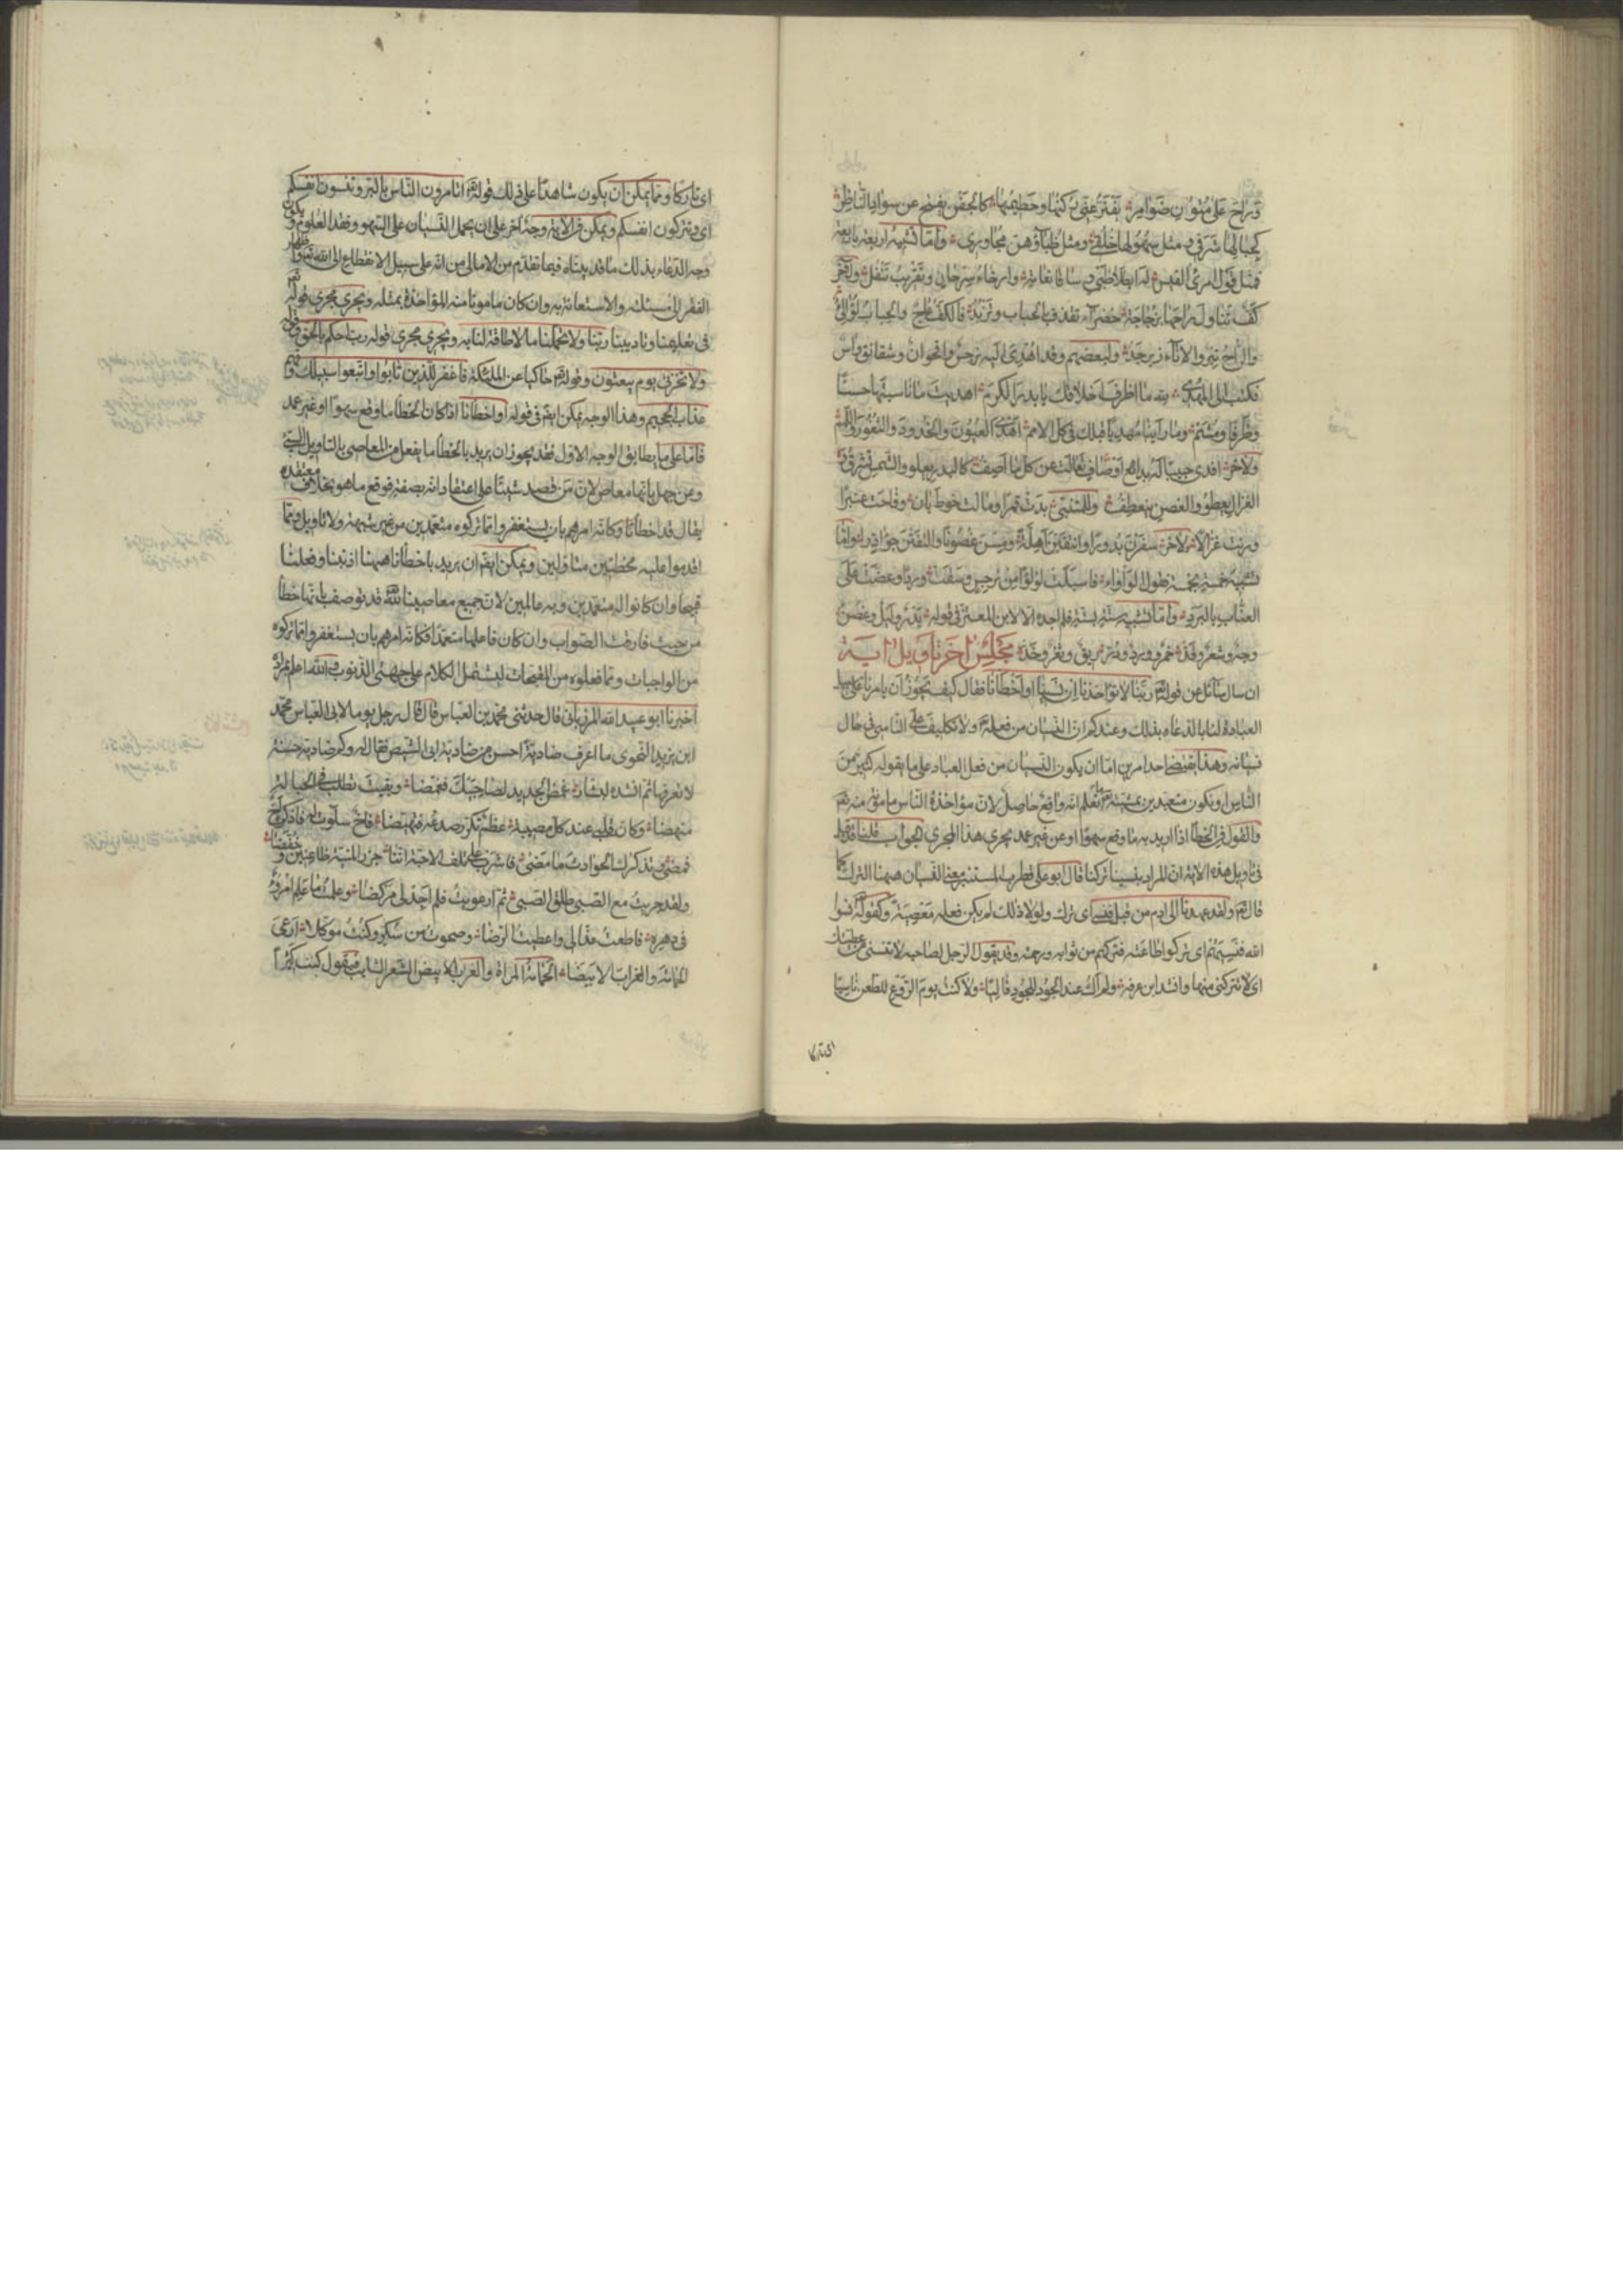 وراح على متون ضوامر يفتر عنى ركبها وحطيمها كالجفن يفتح عن سواد الناظر
كحبالها شرفي ومثل سهولها خلقي ومثل ظبائهن مجاوري واما تشبيه اربعة باربعة
فمثل قول امرئ القيس له ايطلا ظبي وساقا نعامة وارخاء سرحان وتقريب تتفل ولآخر
كف تناول راحها بزجاجة خضراء تقذف بالحباب وتزبد فالكف عاج والحباب لؤلؤ
والراح تبر والاناء زبرجد ولبعضهم وقد اهدى اليه نرجس واقحوان وشقائق وآس
فكتب الى المهدى لله ما اظرف اخلاقك يا بدر الكرم اهديت ما ناسبها حسنا
وظرفا ومشم وما رأينا مهديا قبلك في كل الامم اهدى العيون والخدود والثغور واللمم
ولآخر افدى حبيبا له بدائع اوصاف تعالت عن كل ما اصف كالبدر يعلو والشمس تشرق و
الغزال يعطو والغصن ينعطف وللمتنبي بدت قمرا ومالت خوط بان وفاحت عنبرا
ورنت غزالا ولآخر سفرن بدورا وانتقبن اهلة ومسن غصونا والتفتن جآذرا واما
تشبيه خمسة بخمسة فقول الوأواء فاسبلت لؤلؤا من نرجس وسقت وردا وعضت على
العناب بالبرد واما تشبيه ستة بستة فلم اجده الا لابن المعتز في قوله بدر وليل وغصن
وجه وشعر وقد خمر وورد ودر ريق وثغر وخد مجلس اخر تاويل اية
ان سال سائل عن قوله تعالى ربنا لا تؤاخذنا ان نسينا او اخطأنا فقال كيف يجوز ان يامرنا على سبيل
العبادة لنا بالدعاء بذلك وعندكم ان النسيان من فعله تعالى ولا تكليف على الناسي في حال
نسيانه وهذا يقتضى احد امرين اما ان يكون النسيان من فعل العباد على ما يقوله كثير من
الناس او نكون متعبدين بمسئلته تعالى ما نعلم انه واقع حاصل لان مؤاخذة الناس مامون منه تعالى
والقول في الخطأ اذا اريد به ما وقع سهوا او عن غير عمد يجرى هذا المجرى الجواب قلنا قد قيل
في تاويل هذه الاية ان المراد بنسينا تركنا قال ابو على قطرب المستنير معنى النسيان ههنا الترك كما
قال تعالى ولقد عهدنا الى ادم من قبل فنسى اى ترك ولولا ذلك لم يكن فعله معصية وكقوله تعالى نسوا
الله فنسيهم اى تركوا طاعته فتركهم من ثوابه ورحمته وقد يقول الرجل لصاحبه لا تنسنى من عطيتك
اى لا تتركنى منها وانشد ابن عرفه ولم اك عند الجود للجود قاليا ولا كنت يوم الروع للطعن ناسيا
اى تاركا
اى تاركا ومما يمكن ان يكون شاهدا على ذلك قوله تعالى اتامرون الناس بالبر وتنسون انفسكم
اى وتتركون انفسكم ويمكن في الاية وجه آخر على ان يحمل النسيان على السهو وفقد العلوم ويكون
وجه الدعاء بذلك ما قد بيناه فيما تقدم من الامالى من انه على سبيل الانقطاع الى الله تعالى واظهار
الفقر الى مسئلته والاستعانة به وان كان مامونا منه المؤاخذة بمثله ويجرى مجرى قوله تعالى
في تعليمنا وتاديبنا ربنا ولا تحملنا ما لا طاقة لنا به ويجرى مجرى قوله رب احكم بالحق وقوله
ولا تخزنى يوم يبعثون وقوله تعالى حاكيا عن الملئكة فاغفر للذين تابوا واتبعوا سبيلك وقهم
عذاب الجحيم وهذا الوجه يمكن ايضا في قوله او اخطأنا اذا كان الخطأ ما وقع سهوا او غير عمد
فاما على ما يطابق الوجه الاول فقد يجوز ان يريد بالخطأ ما يفعل من المعاصى بالتاويل السيئ
وعن جهل بانها معاص لان من قصد شيئا على اعتقاد انه بصفة فوقع ما هو بخلاف معتقده
يقال قد اخطأ فكانه امرهم بان يستغفروا مما تركوه متعمدين من غير شبهة ولا تاويل ومما
اقدموا عليه مخطئين متأولين ويمكن ايضا ان يريد باخطأنا ههنا اذنبنا وفعلنا
قبيحا وان كانوا له متعمدين وبه عالمين لان جميع معاصينا لله تعالى قد توصف بانها خطأ
من حيث فارقت الصواب وان كان فاعلها متعمدا فكانه امرهم بان يستغفروا مما تركوه
من الواجبات ومما فعلوه من المقبحات ليشتمل الكلام على جهتى الذنوب والله اعلم بمراده
اخبرنا ابو عبيد الله المرزبانى قال حدثنى محمد بن العباس قال قال رجل يوما لابى العباس محمد
ابن يزيد النحوى ما اعرف ضادية احسن من ضادية ابى الشيص فقال له وكم ضادية حسنة
لا تعرفها ثم انشده لبشار غمض الجديد بصاحبيك فغمضا وبقيت تطلب في الحبالة
منهضا وكان قلبى عند كل مصيبة عظم تكرر صدعه فتهيضا فاخ سلوت له فاذكر اخ
فمضى وتذكرك الحوادث ما مضى فاشرب على تلف الاحبة اننا جزر المنية ظاعنين وخفضا
ولقد جريت مع الصبى طلق الصبى ثم ارعويت فلم اجد لى مركضا وعلمت ما علم امرؤ
في دهره فاطعت عذالى واعطيت الرضا وصحوت من سكر وكنت موكلا ارعى
الحمامة والغراب الابيضا الحمامة المرأة والغراب الابيض الشعر الشايب فيقول كنت كثيرا